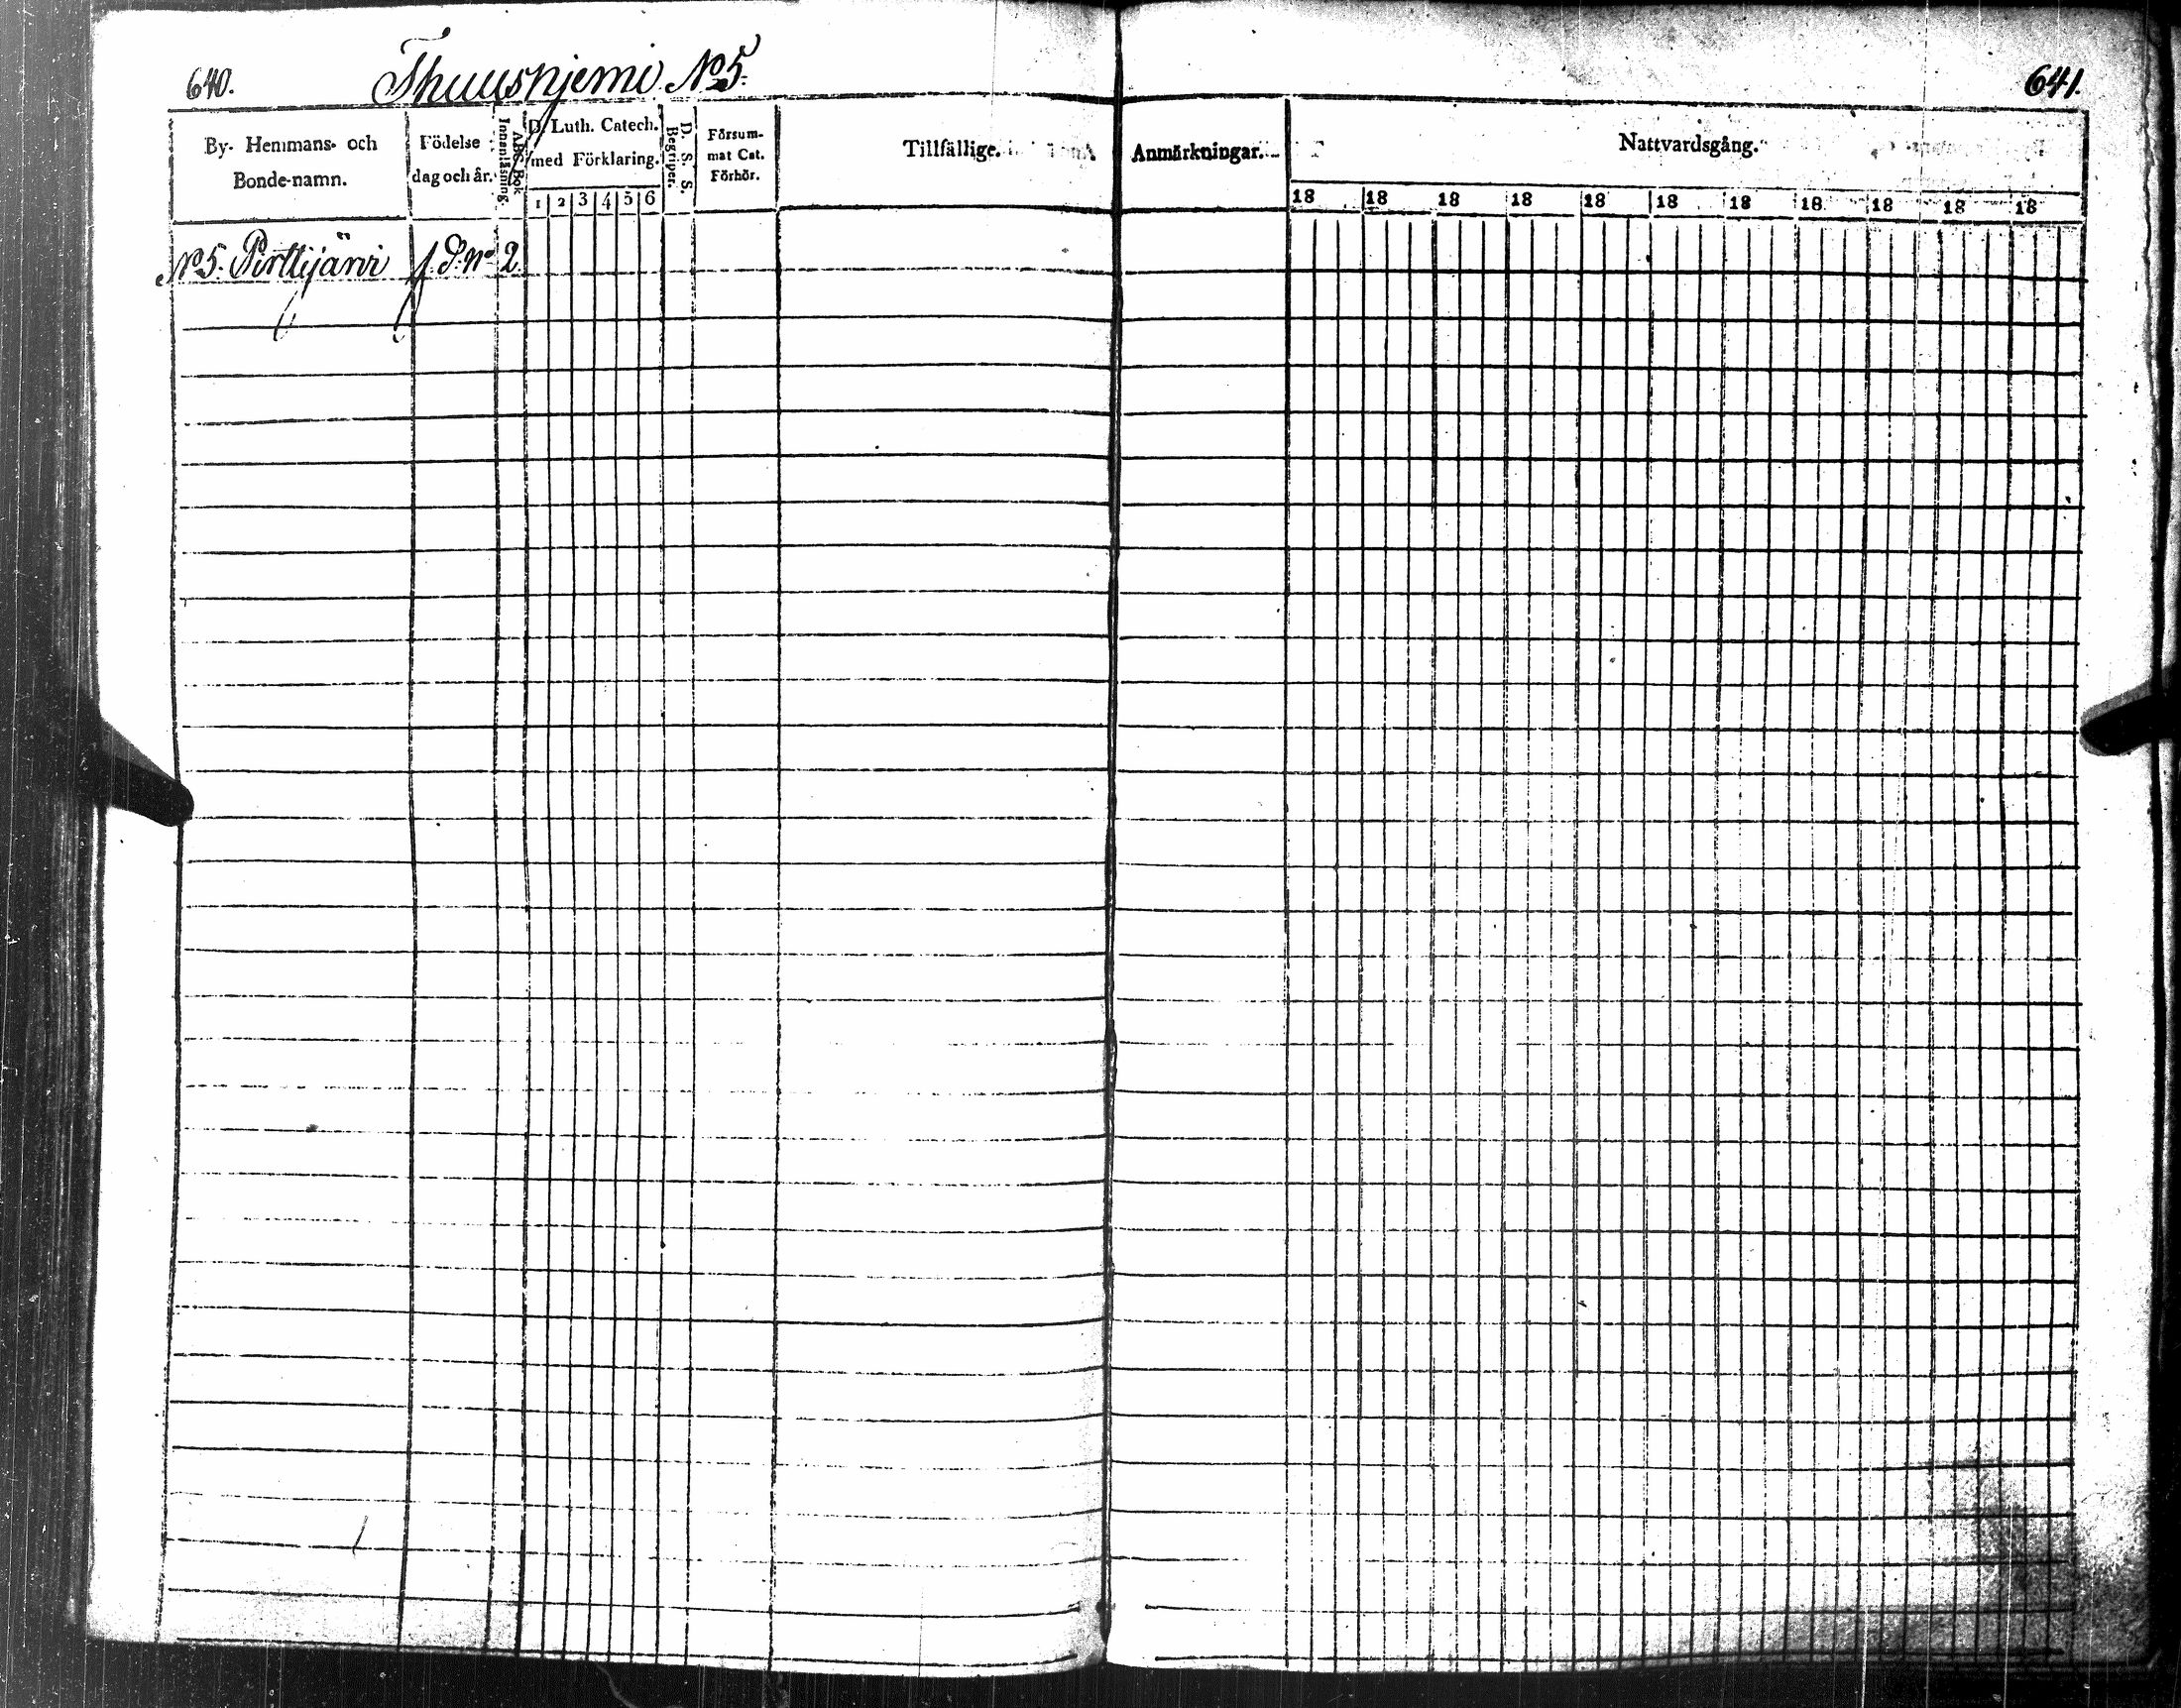 640. Thuusnjemi No 5. 641.
By- Hemmans- och Bonde-namn.
Födelse dag och år.
Innanläsning.
ABC-Bok
D. Luth. Catech. med Förklaring.
1 2 3 4 5 6
D. S. S. Begriper.
Försum- mat Cat. Förhör.
Tillfällige.
Anmärkningar.
Nattvardsgång.
18 18 18 18 18 18 18 18 18 18 18
No 5. Pirttijärvi f. d. No 2